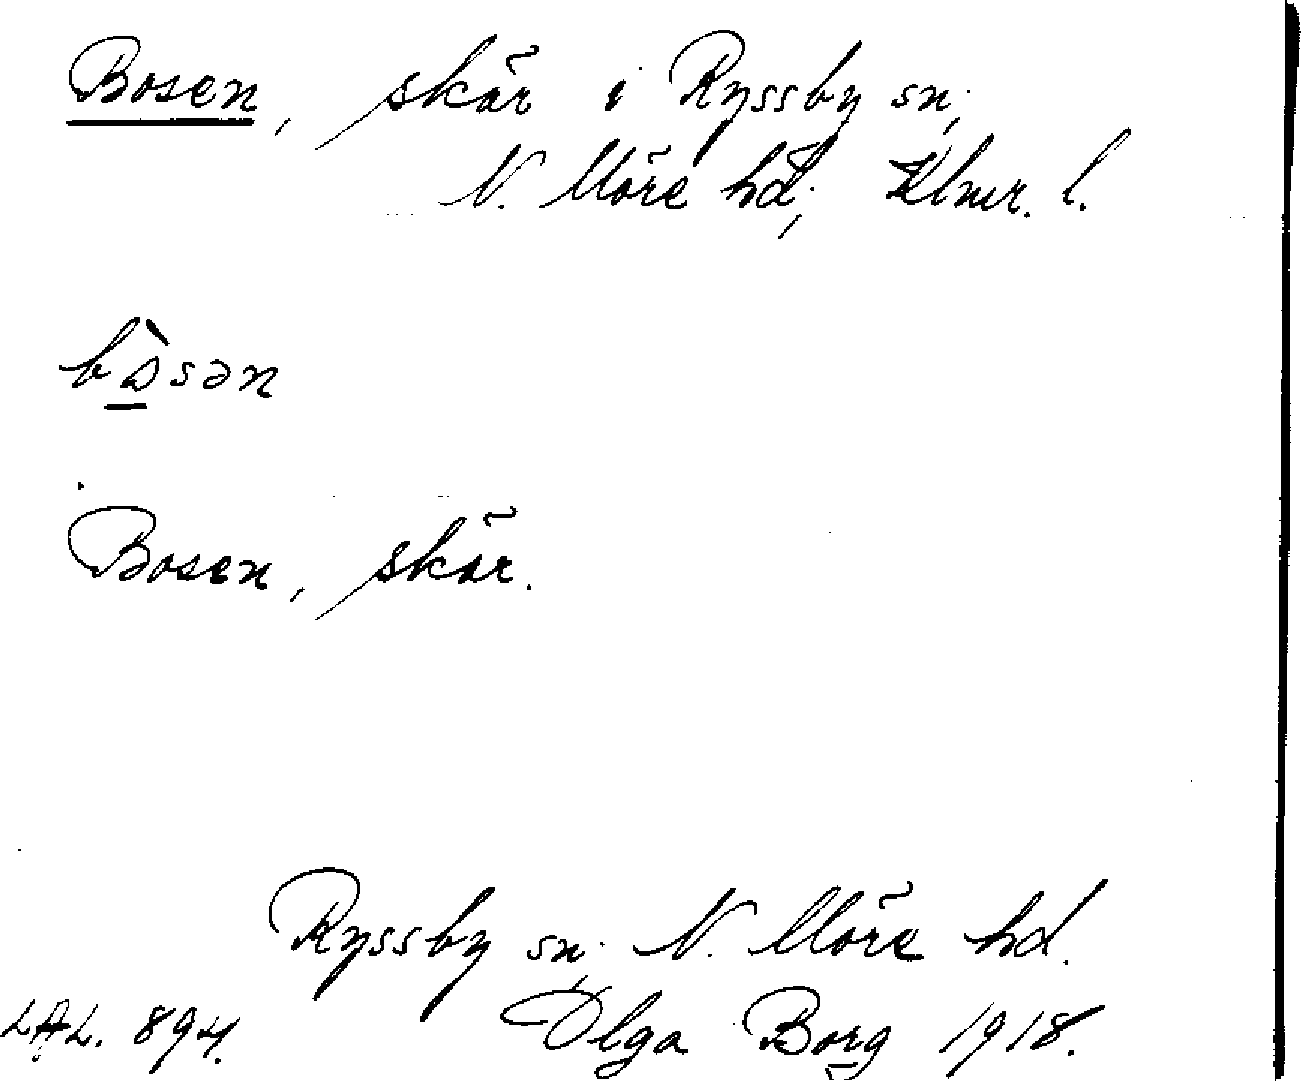 Bosen, skär i Ryssby sn,
N. Möre hd, Klmr. l.
bɷ̀sən
Bosen, skär.
Ryssby sn, N. Möre hd.
LAL. 894. Olga Borg 1918.